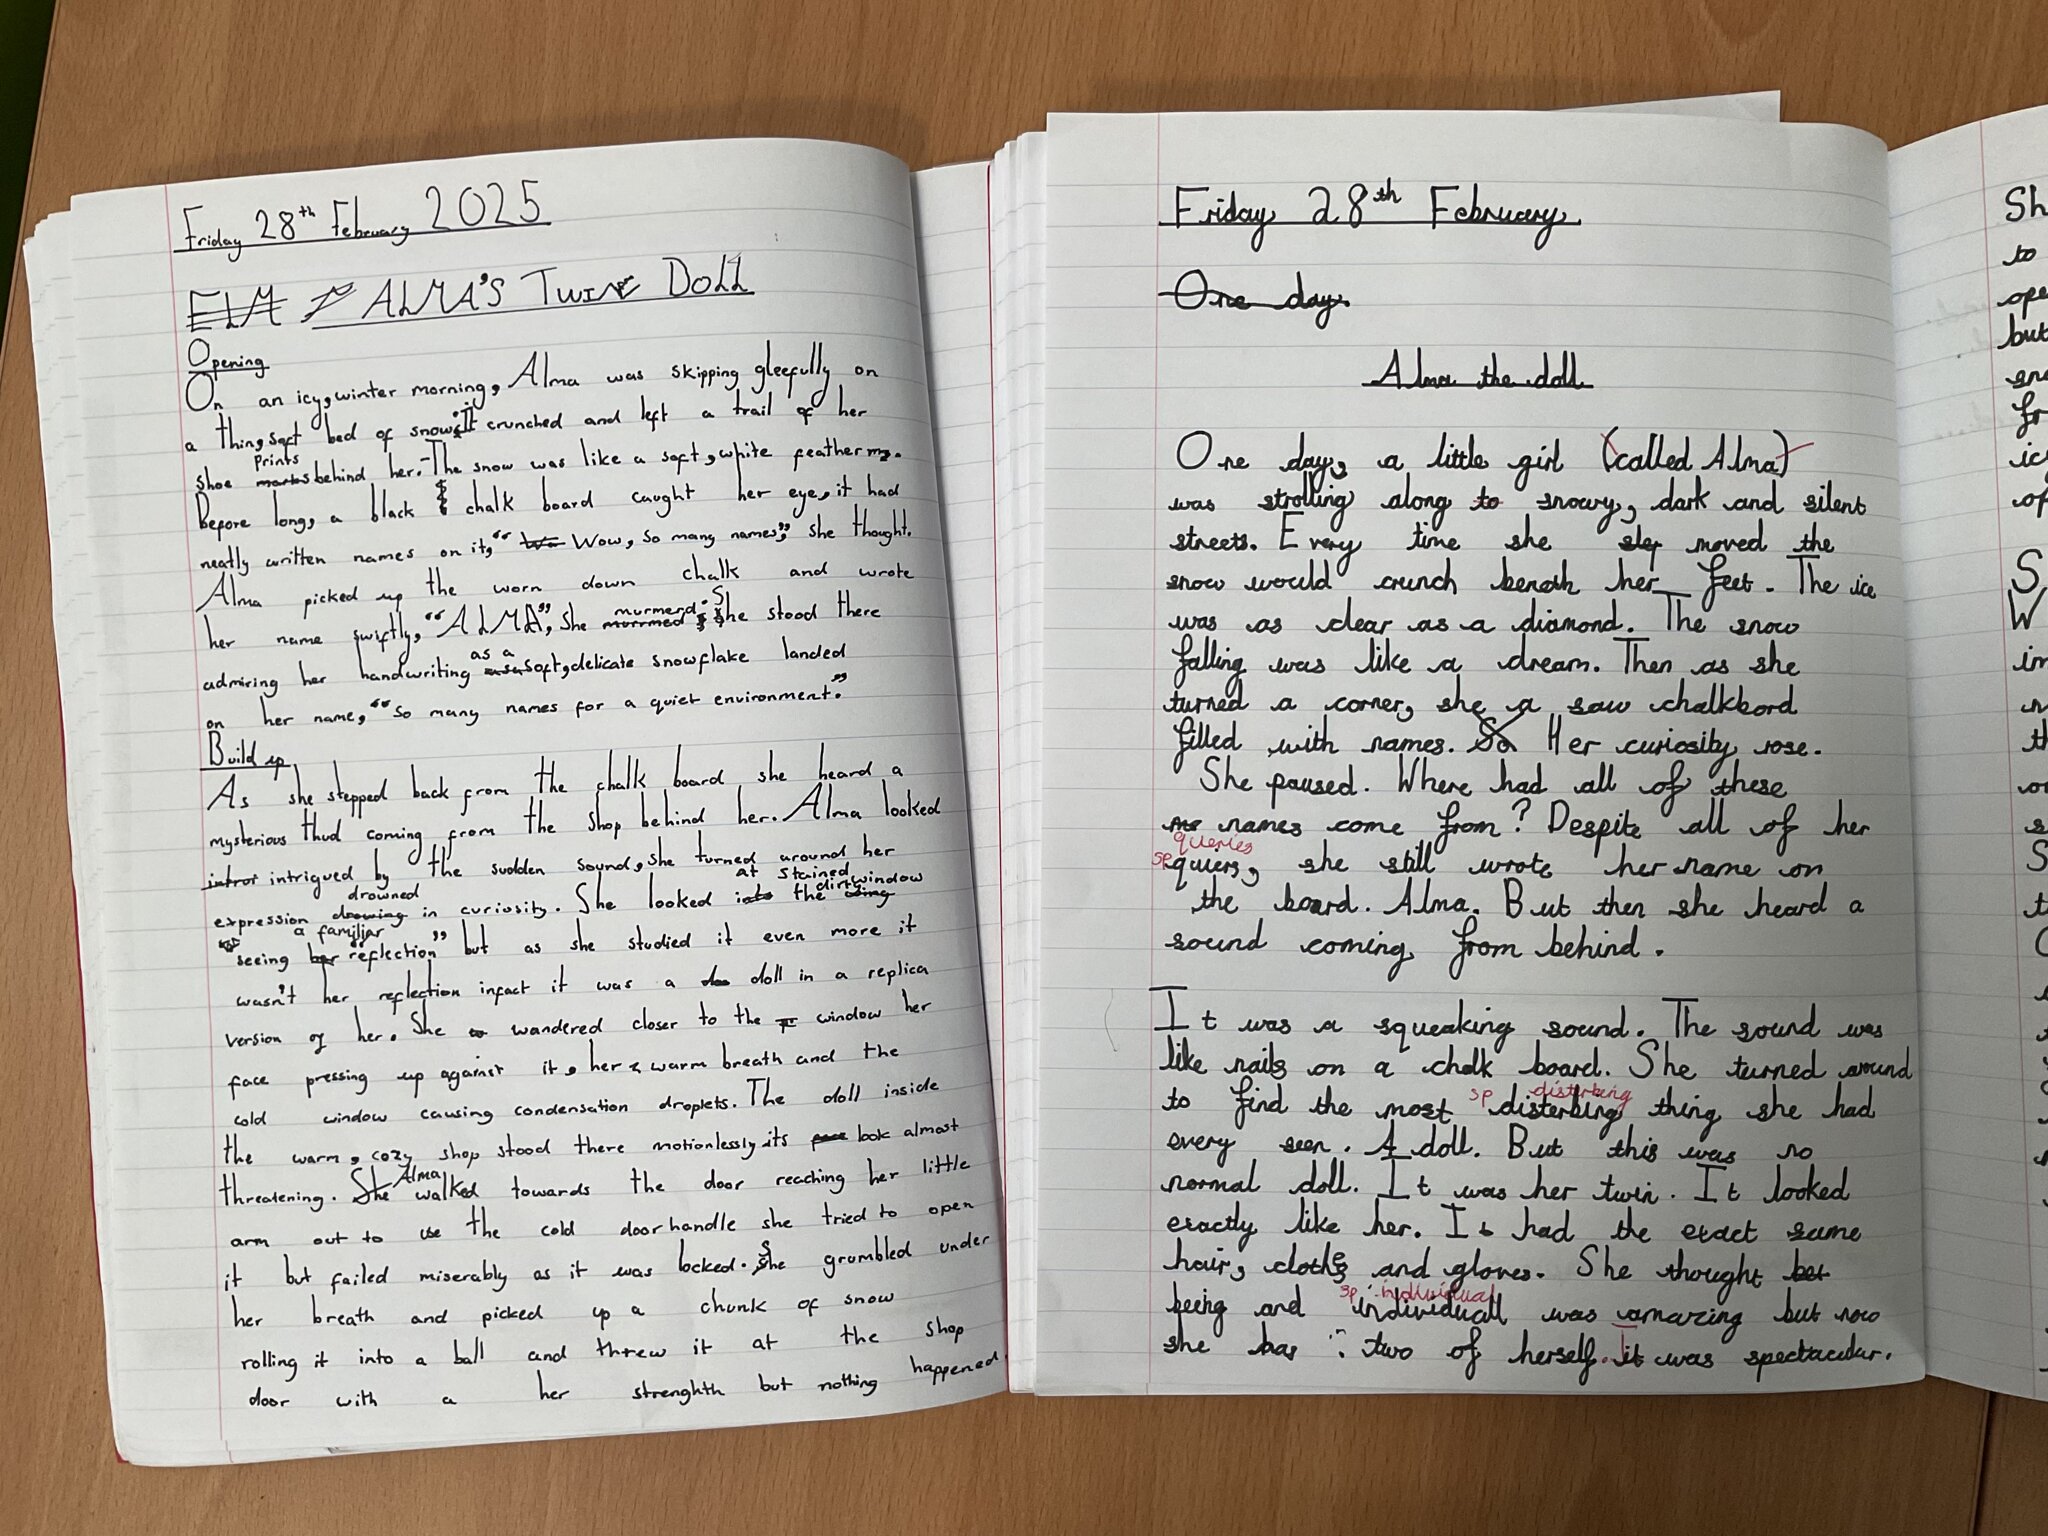 Friday 28th February 2025
ALMA'S Twin Doll
Opening
On an icy, winter morning, Alma was skipping gleefully on
a thin, soft bed of snow. It crunched and left a trail of her
shoe prints behind her. The snow was like a soft, white feather.
Before long, a black chalk board caught her eye, it had
neatly written names on it, "Wow, so many names," she thought.
Alma picked up the worn down chalk and wrote
her name swiftly, "ALMA", she murmerd. She stood there
admiring her handwriting as a soft, delicate snowflake landed
on her name, "So many names for a quiet environment."
Build up
As she stepped back from the chalk board she heard a
mysterious thud coming from the shop behind her. Alma looked
intrigued by the suddon sound, she turned around her
expression drowned in curiosity. She looked at the stained dirty window
seeing a familiar "reflection" but as she studied it even more it
wasn't her reflection infact it was a doll in a replica
version of her. She wandered closer to the window her
face pressing up against it, her warm breath and the
cold window causing condensation droplets. The doll inside
the warm, cozy shop stood there motionlessly its look almost
threatening. Alma walked towards the door reaching her little
arm out to use the cold door handle she tried to open
it but failed miserably as it was locked. She grumbled under
her breath and picked up a chunk of snow
rolling it into a ball and threw it at the shop
door with a her strenghth but nothing happened
Friday 28th February
One day
Alma the doll
One day, a little girl (called Alma)
was strolling along to snowy, dark and silent
streets. Every time she moved the
snow would crunch beneth her feet. The ice
was as clear as a diamond. The snow
falling was like a dream. Then as she
turned a corner, she a saw chalkbord
filled with names. Her curiosity rose.
She paused. Where had all of these
names come from? Despite all of her
queries
sp quiers, she still wrote her name on
the board. Alma. But then she heard a
sound coming from behind.
It was a squeaking sound. The sound was
like nails on a chalk board. She turned around
sp disturbing
to find the most disterbing thing she had
every seen. A doll. But this was no
normal doll. It was her twin. It looked
exactly like her. It had the exact same
hair, clothes and gloves. She thought
sp individual
being and individuall was amazing but now
she has two of herself. It was spectacular.